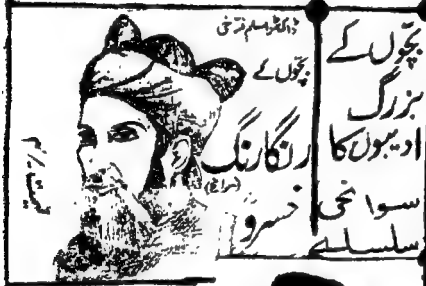 بچّوں کے
بزرگ
ادیبوں کا
سوانحی
سلسلے
ڈاکٹر اسلم فرخی
بچّوں کے
رنگا رنگ
خسرو